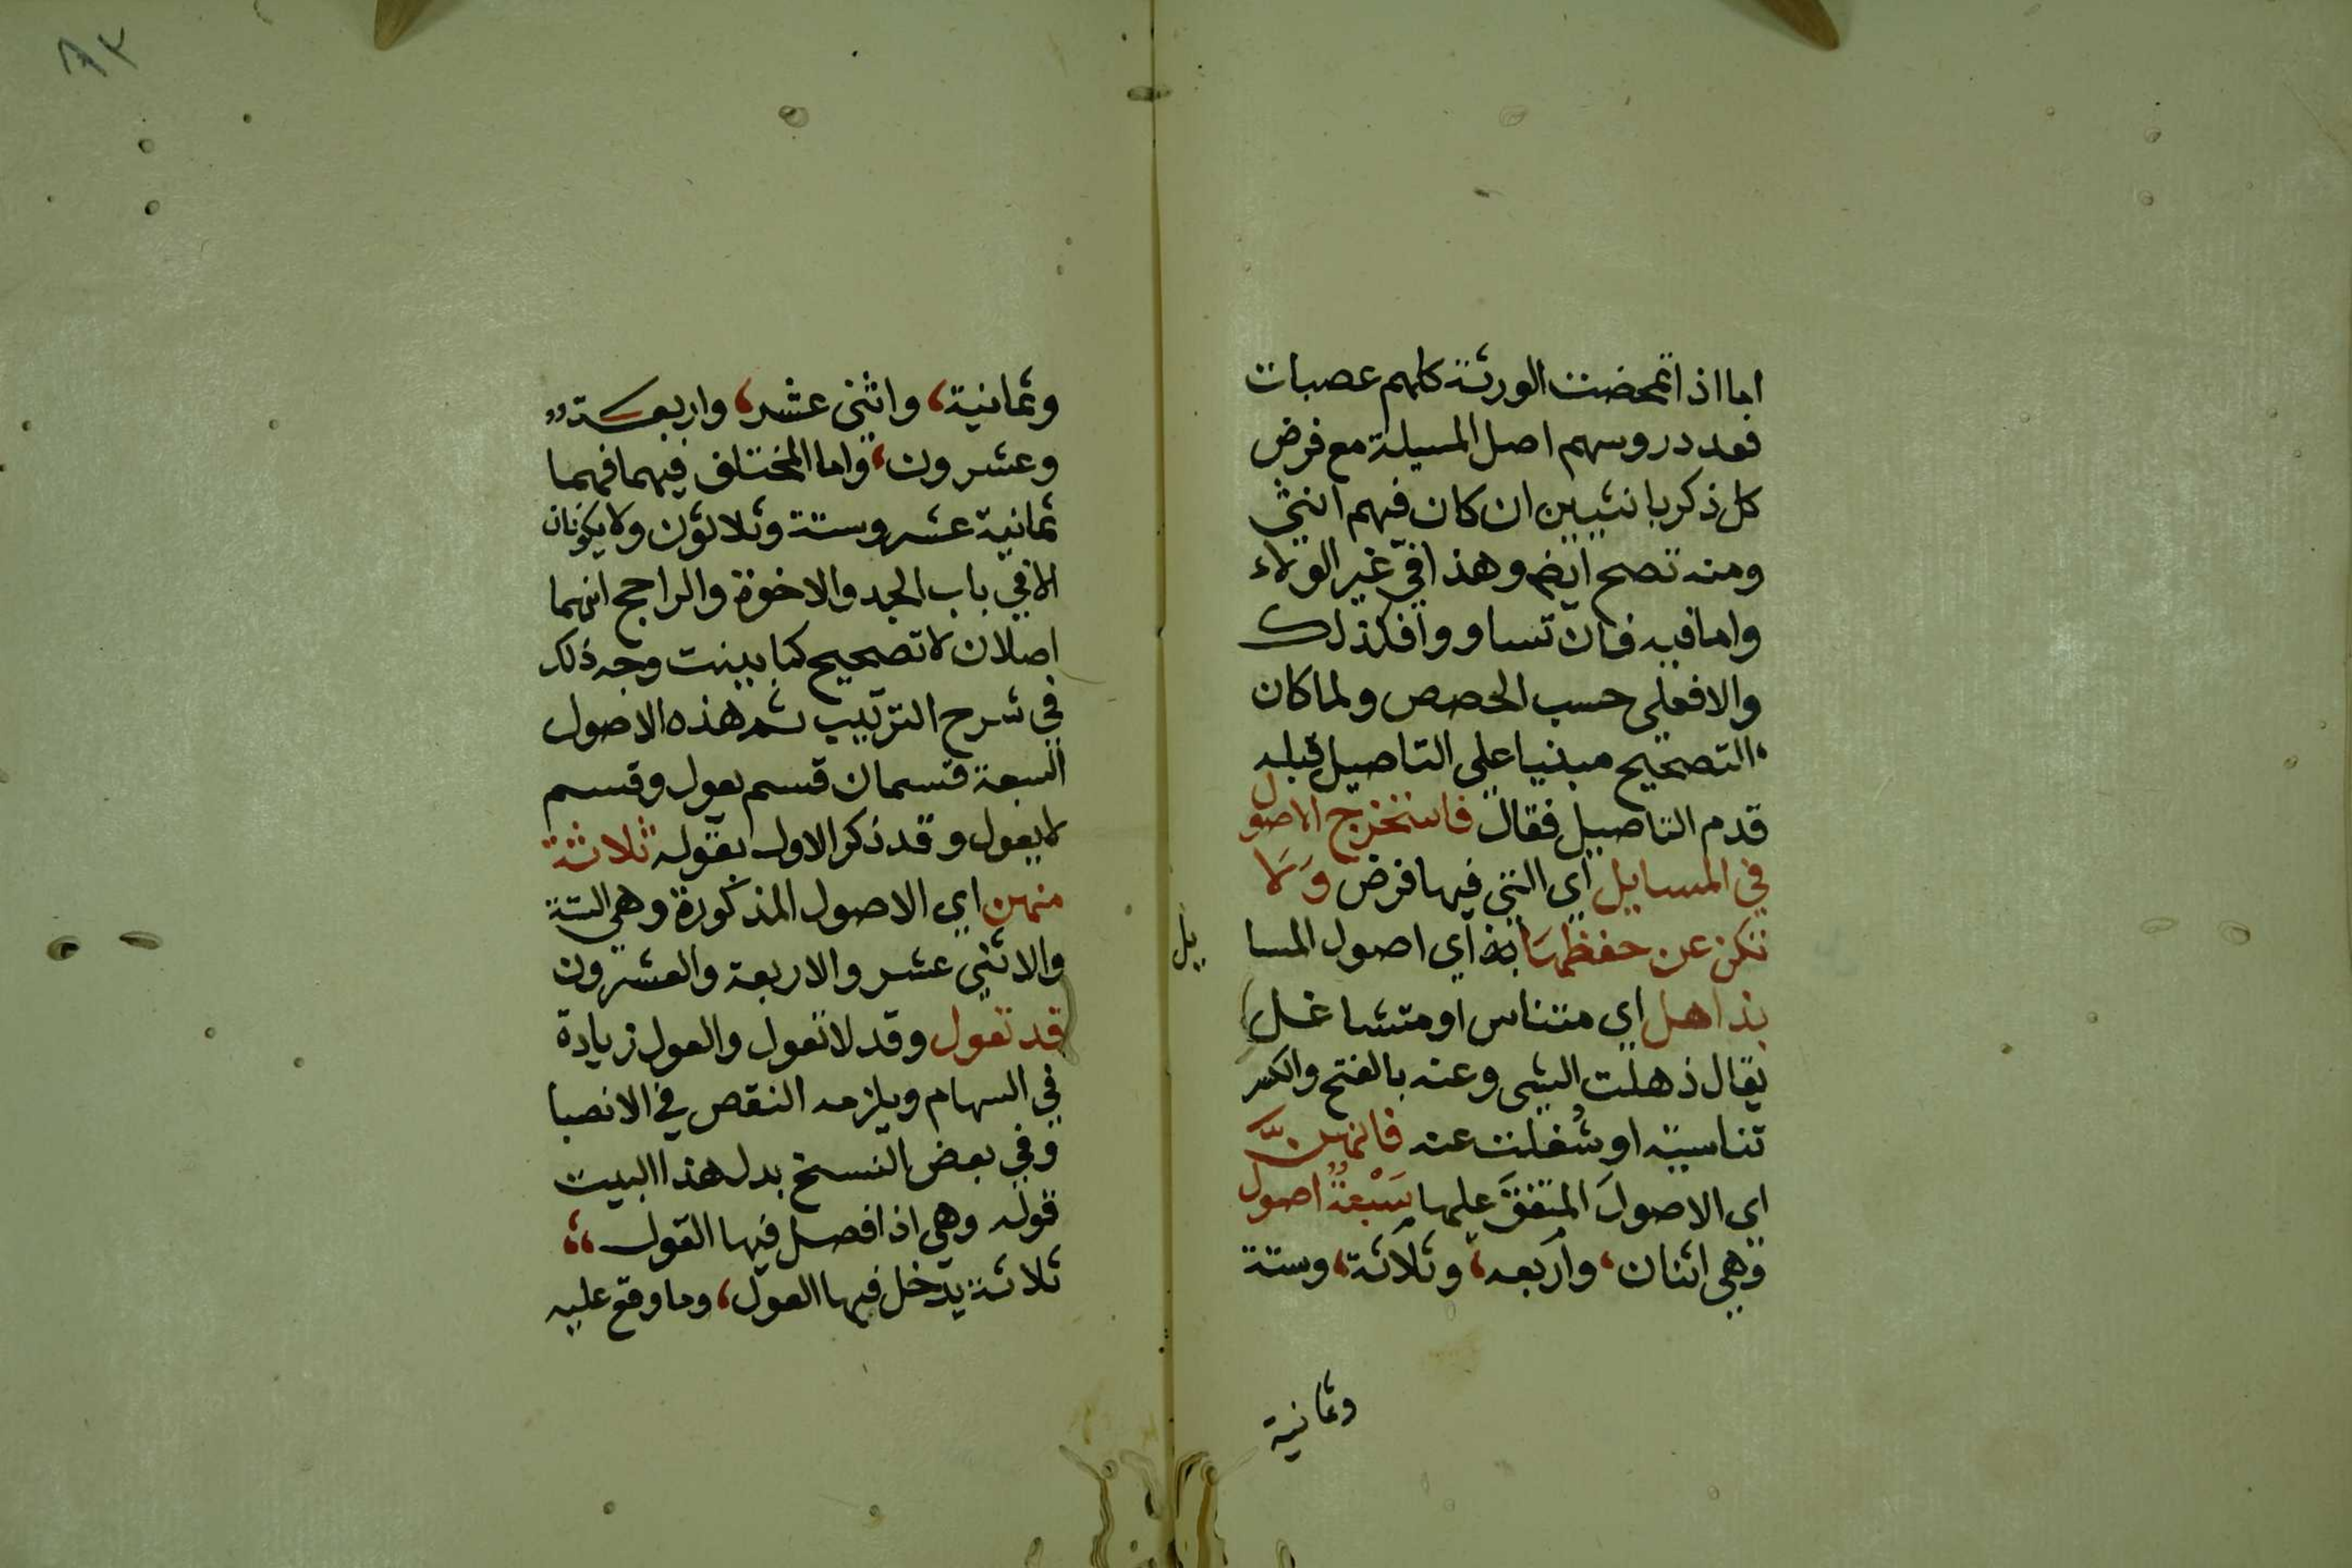 اما اذا تمحضت الورثة كلهم عصبات
فعدد روسهم اصل المسيلة مع فرض
كل ذكر بانثيين ان كان فيهم انثي
ومنه تصح ايضم وهذا في غير الولاء
واما فيه فان تساووا فكذلك
والا فعلي حسب الحصص ولما كان
التصحيح مبنيا علي التاصيل قبله
قدم التاصيل فقال فاستخرج الاصول
في المسايل اي التي فيها فرض وَلَا
تكن عن حفظهَا اي اصول المسا
يل
بذاهل اي متناس او متشاغل
يقال ذهلت الشي وعنه بالفتح والكسر
تناسيته او شُغلت عنه فانهنَّ
اي الاصولَ المتفقَ عليها سَبْعةٌ اصول
وهي اثنان، واربعه، وثلاثة، وستة
وثمانية
وثمانية، واثني عشر، واربعة
وعشرون، واما المختلف فيهما فهما
ثمانية عشر وستة وثلاثون ولا يكونان
الا في باب الجد والاخوة والراجح انهما
اصلان لا تصحيح كما بينت وجه ذلك
في شرح الترتيب ثم هذه الاصول
السبعة قسمان قسم يعول وقسم
لا يعول وقد ذكر الاول بقوله ثلاثة
منهن اي الاصول المذكورة وهي الستة
والاثني عشر والاربعة والعشرون
قد تعول وقد لا تعول والعول زيادة
في السهام ويلزمه النقص في الانصبا
وفي بعض النسخ بدل هذا البيت
قوله وهي اذا فصل فيها القول
ثلاثة يدخل فيها العول، وما وقع عليه